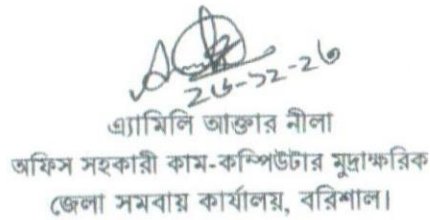 এ্যামিলি আক্তার নীলা
অফিস সহকারী কাম-কম্পিউটার মুদ্রাক্ষরিক
জেলা সমবায় কার্যালয়, বরিশাল।